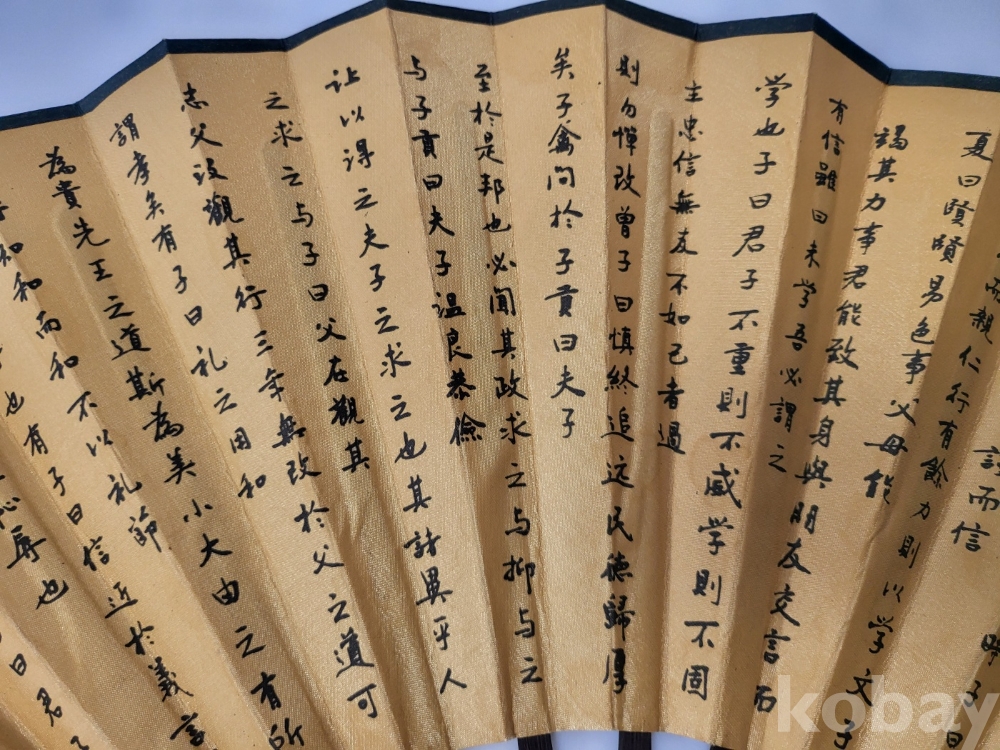 而信
親仁行有餘力則以学文子
夏曰賢賢易色事父母能
竭其力事君能致其身與朋友交言而
有信雖曰未学吾必謂之
学也子曰君子不重則不威学則不固
主忠信無友不如己者過
則勿憚改曾子曰慎終追远民德歸厚
矣子禽问於子貢曰夫子
至於是邦也必闻其政求之与抑与之
与子貢曰夫子温良恭儉
让以得之夫子之求之也其諸異乎人
之求之与子曰父在觀其
志父没觀其行三年無改於父之道可
謂孝矣有子曰礼之用和
為貴先王之道斯為美小大由之有所
知和而和不以礼節
也有子曰信近於義言
恥辱也
曰君
kobay